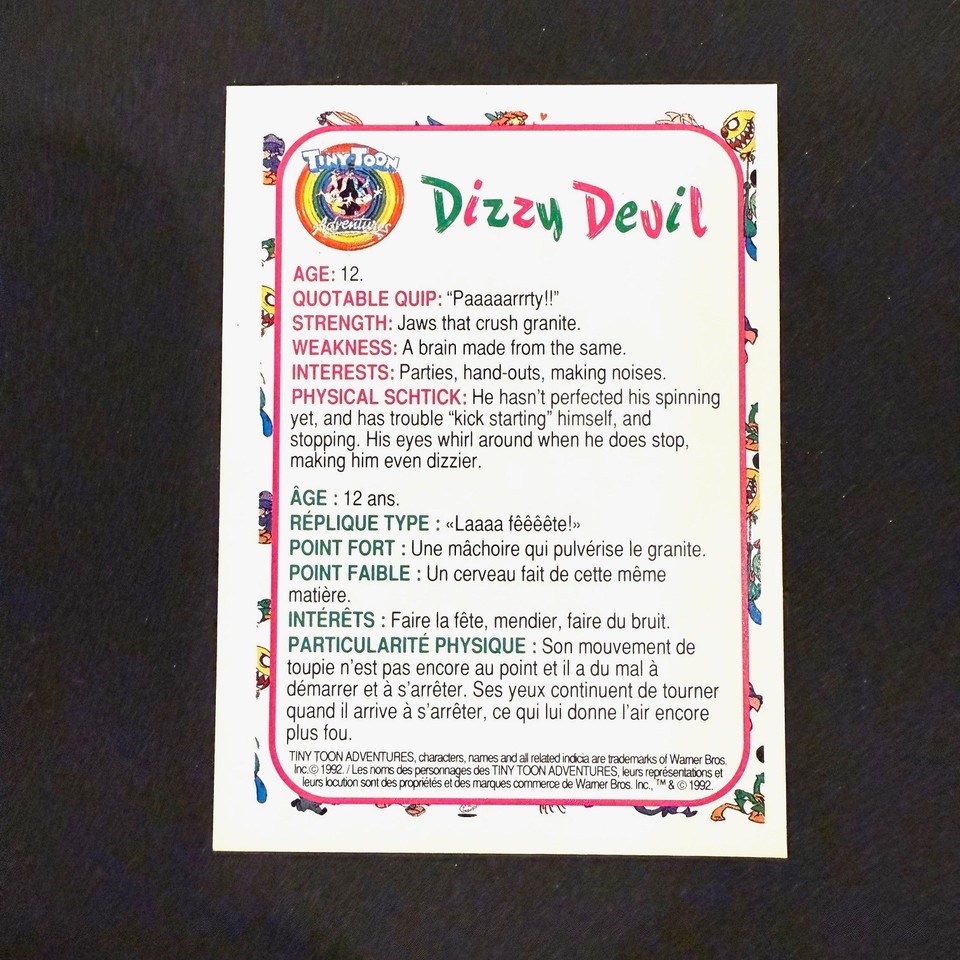 TINY TOON
Adventures
Dizzy Devil
AGE: 12.
QUOTABLE QUIP: “Paaaaarrrty!!”
STRENGTH: Jaws that crush granite.
WEAKNESS: A brain made from the same.
INTERESTS: Parties, hand-outs, making noises.
PHYSICAL SCHTICK: He hasn’t perfected his spinning
yet, and has trouble “kick starting” himself, and
stopping. His eyes whirl around when he does stop,
making him even dizzier.
ÂGE : 12 ans.
RÉPLIQUE TYPE : «Laaaa fêêêête!»
POINT FORT : Une mâchoire qui pulvérise le granite.
POINT FAIBLE : Un cerveau fait de cette même
matière.
INTÉRÊTS : Faire la fête, mendier, faire du bruit.
PARTICULARITÉ PHYSIQUE : Son mouvement de
toupie n’est pas encore au point et il a du mal à
démarrer et à s’arrêter. Ses yeux continuent de tourner
quand il arrive à s’arrêter, ce qui lui donne l’air encore
plus fou.
TINY TOON ADVENTURES, characters, names and all related indicia are trademarks of Warner Bros.
Inc.© 1992. / Les noms des personnages des TINY TOON ADVENTURES, leurs représentations et
leurs locution sont des propriétés et des marques commerce de Warner Bros. Inc., ™ & © 1992.